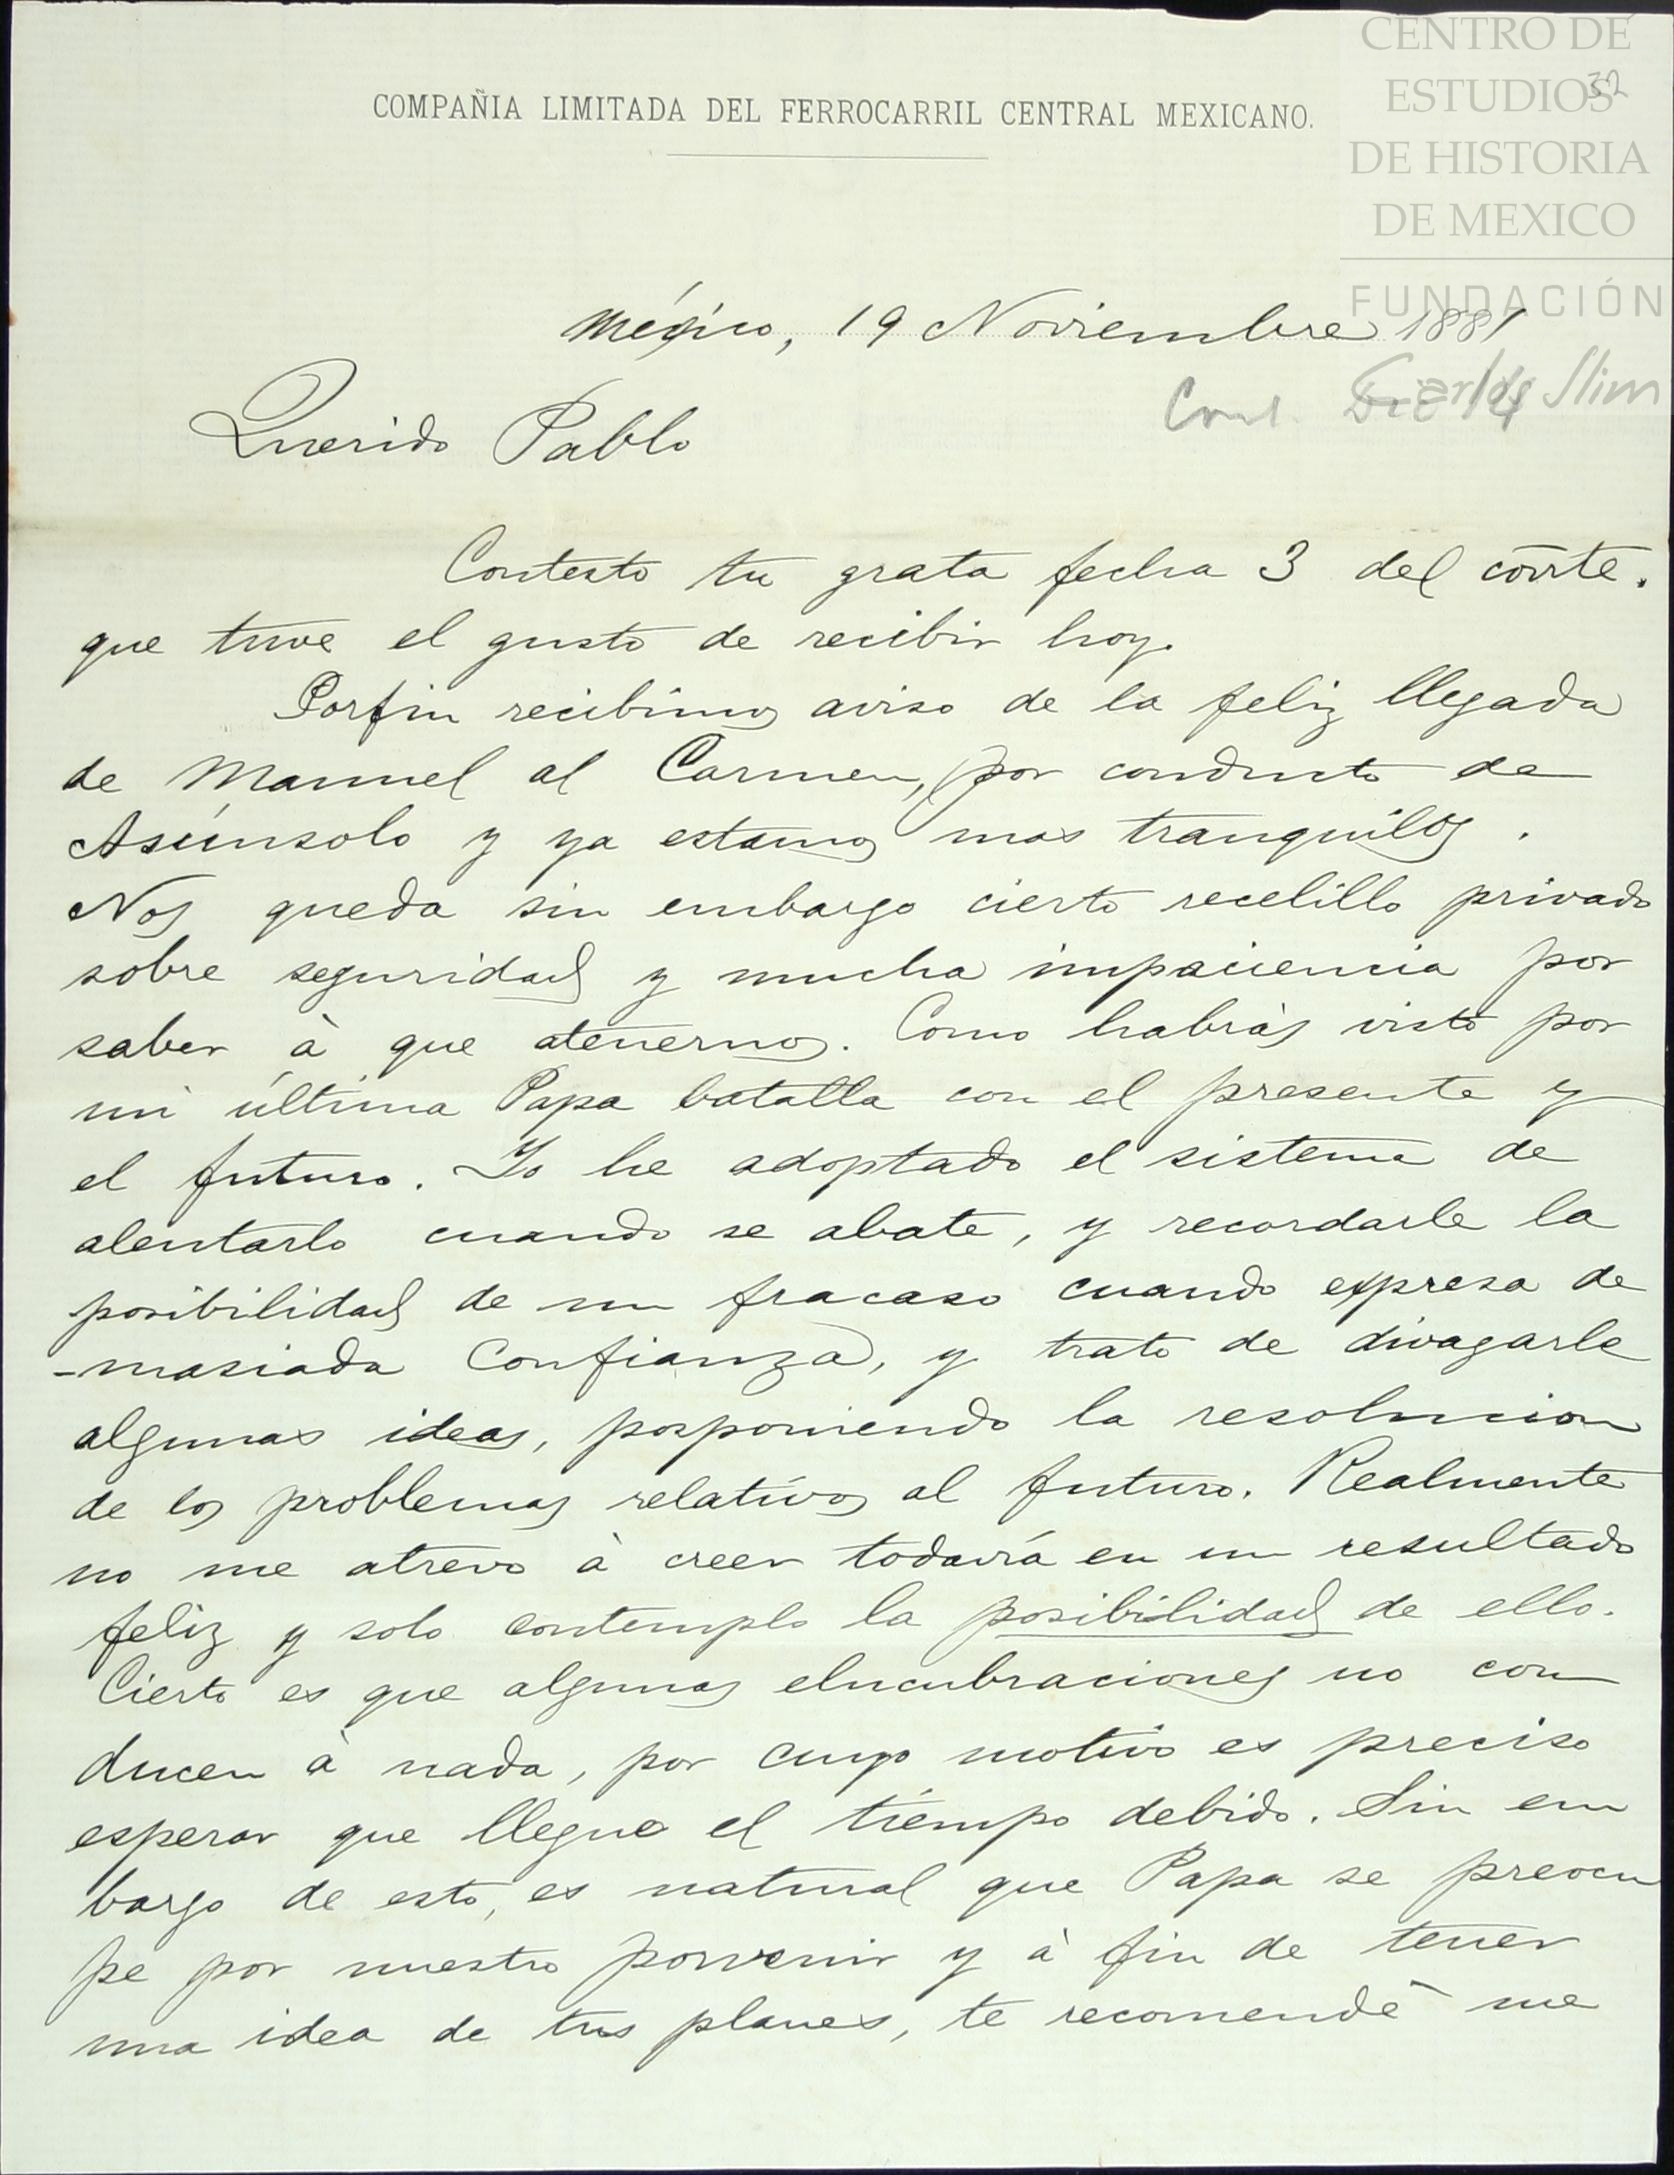 CENTRO DE
ESTUDIOS
32
DE HISTORIA
DE MEXICO
FUNDACIÓN
Carlos Slim
COMPAÑIA LIMITADA DEL FERROCARRIL CENTRAL MEXICANO.
México, 19 Noviembre 1881
Cont. Dic 14
Querido Pablo
Contesto tu grata fecha 3 del corrte.
que tuve el gusto de recibir hoy.
Porfin recibimos aviso de la feliz llegada
de Manuel al Carmen, por conducto de
Asúnsolo y ya estamos mas tranquilos.
Nos queda sin embargo cierto recelillo privado
sobre seguridad y mucha impaciencia por
saber à que atenernos. Como habràs visto por
mi última Papa batalla con el presente y
el futuro. Yo he adoptado el sistema de
alentarlo cuando se abate, y recordarle la
posibilidad de un fracaso cuando expresa de
-masiada confianza, y trato de divagarle
algunas ideas, posponiendo la resolucion
de los problemas relativos al futuro. Realmente
no me atrevo à creer todavía en un resultado
feliz y solo contemplo la posibilidad de ello.
Cierto es que algunas elucubraciones no con
ducen à nada, por cuyo motivo es preciso
esperar que llegue el tiempo debido. Sin em
bargo de esto, es natural que Papa se preocu
pe por nuestro porvenir y à fin de tener
una idea de tus planes, te recomendé me